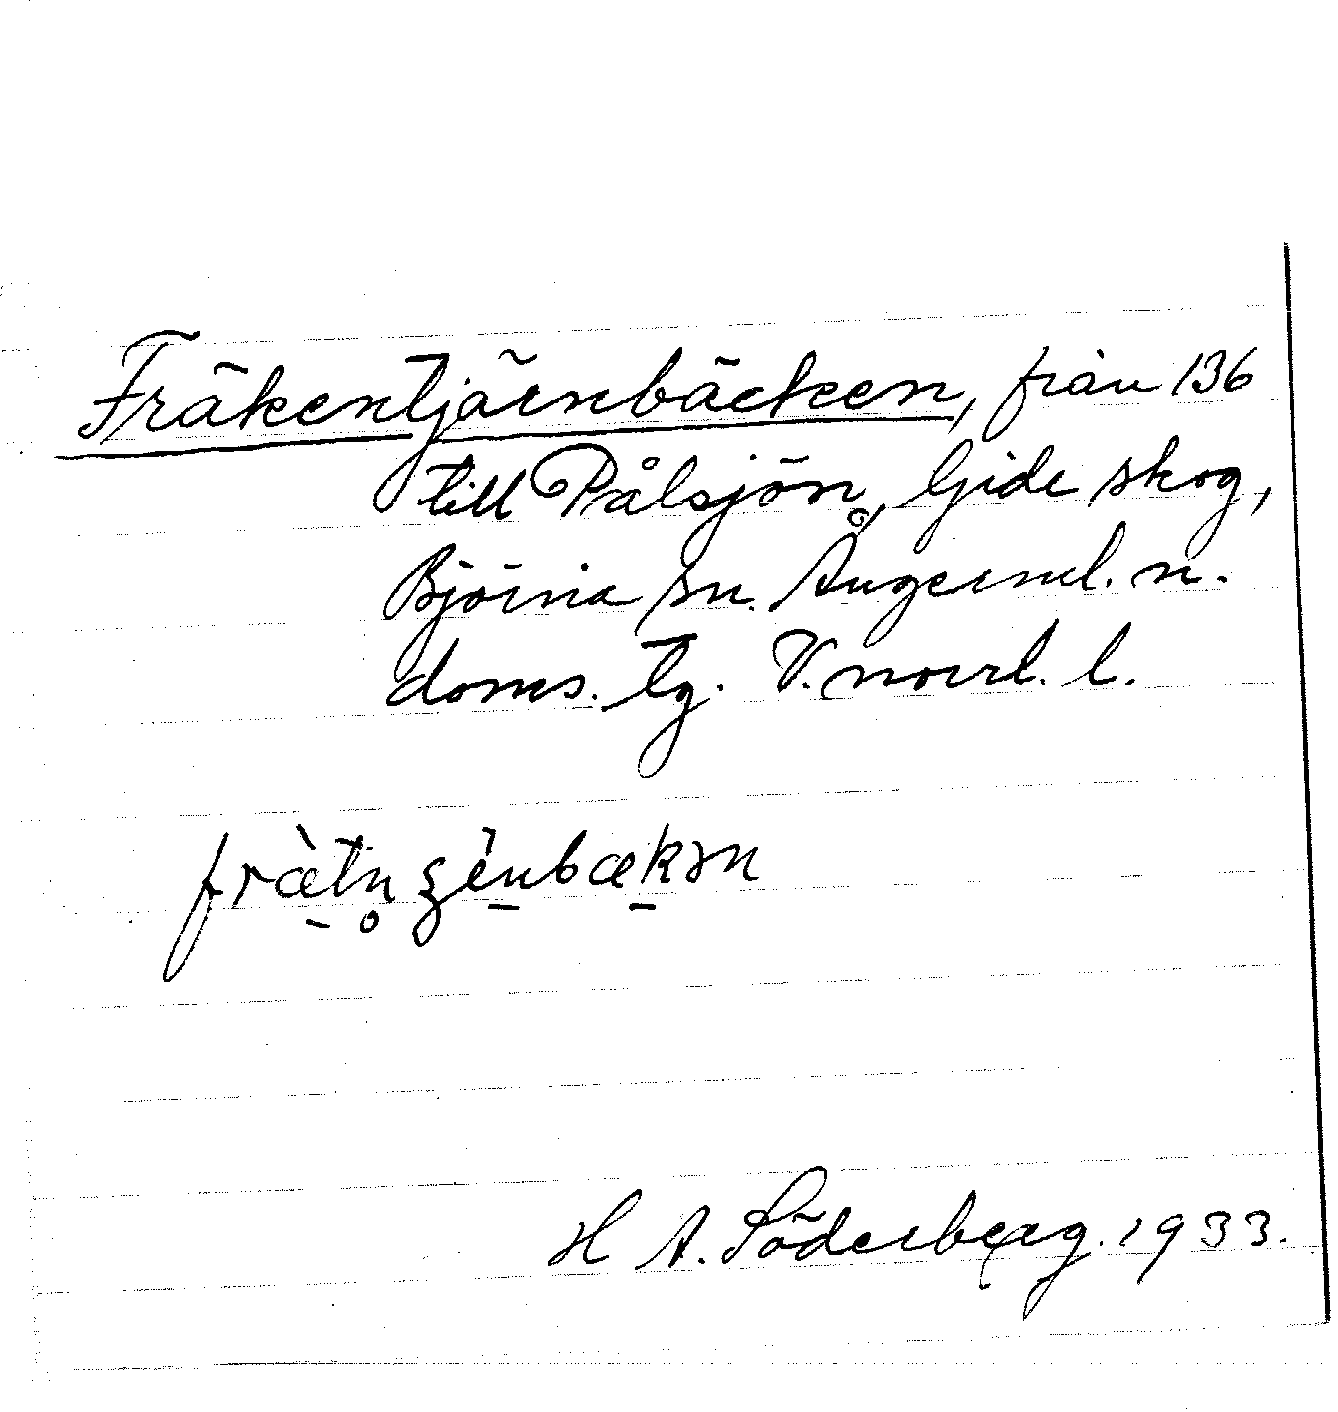 Fräkentjärnbäcken, från 136
till Pålsjön, Gide skog,
Björna sn. Ångerml. n.
doms. tg. V. norrl. l.
fræ̀tn̥ ʂènbækən
H A. Söderberg. 1933.